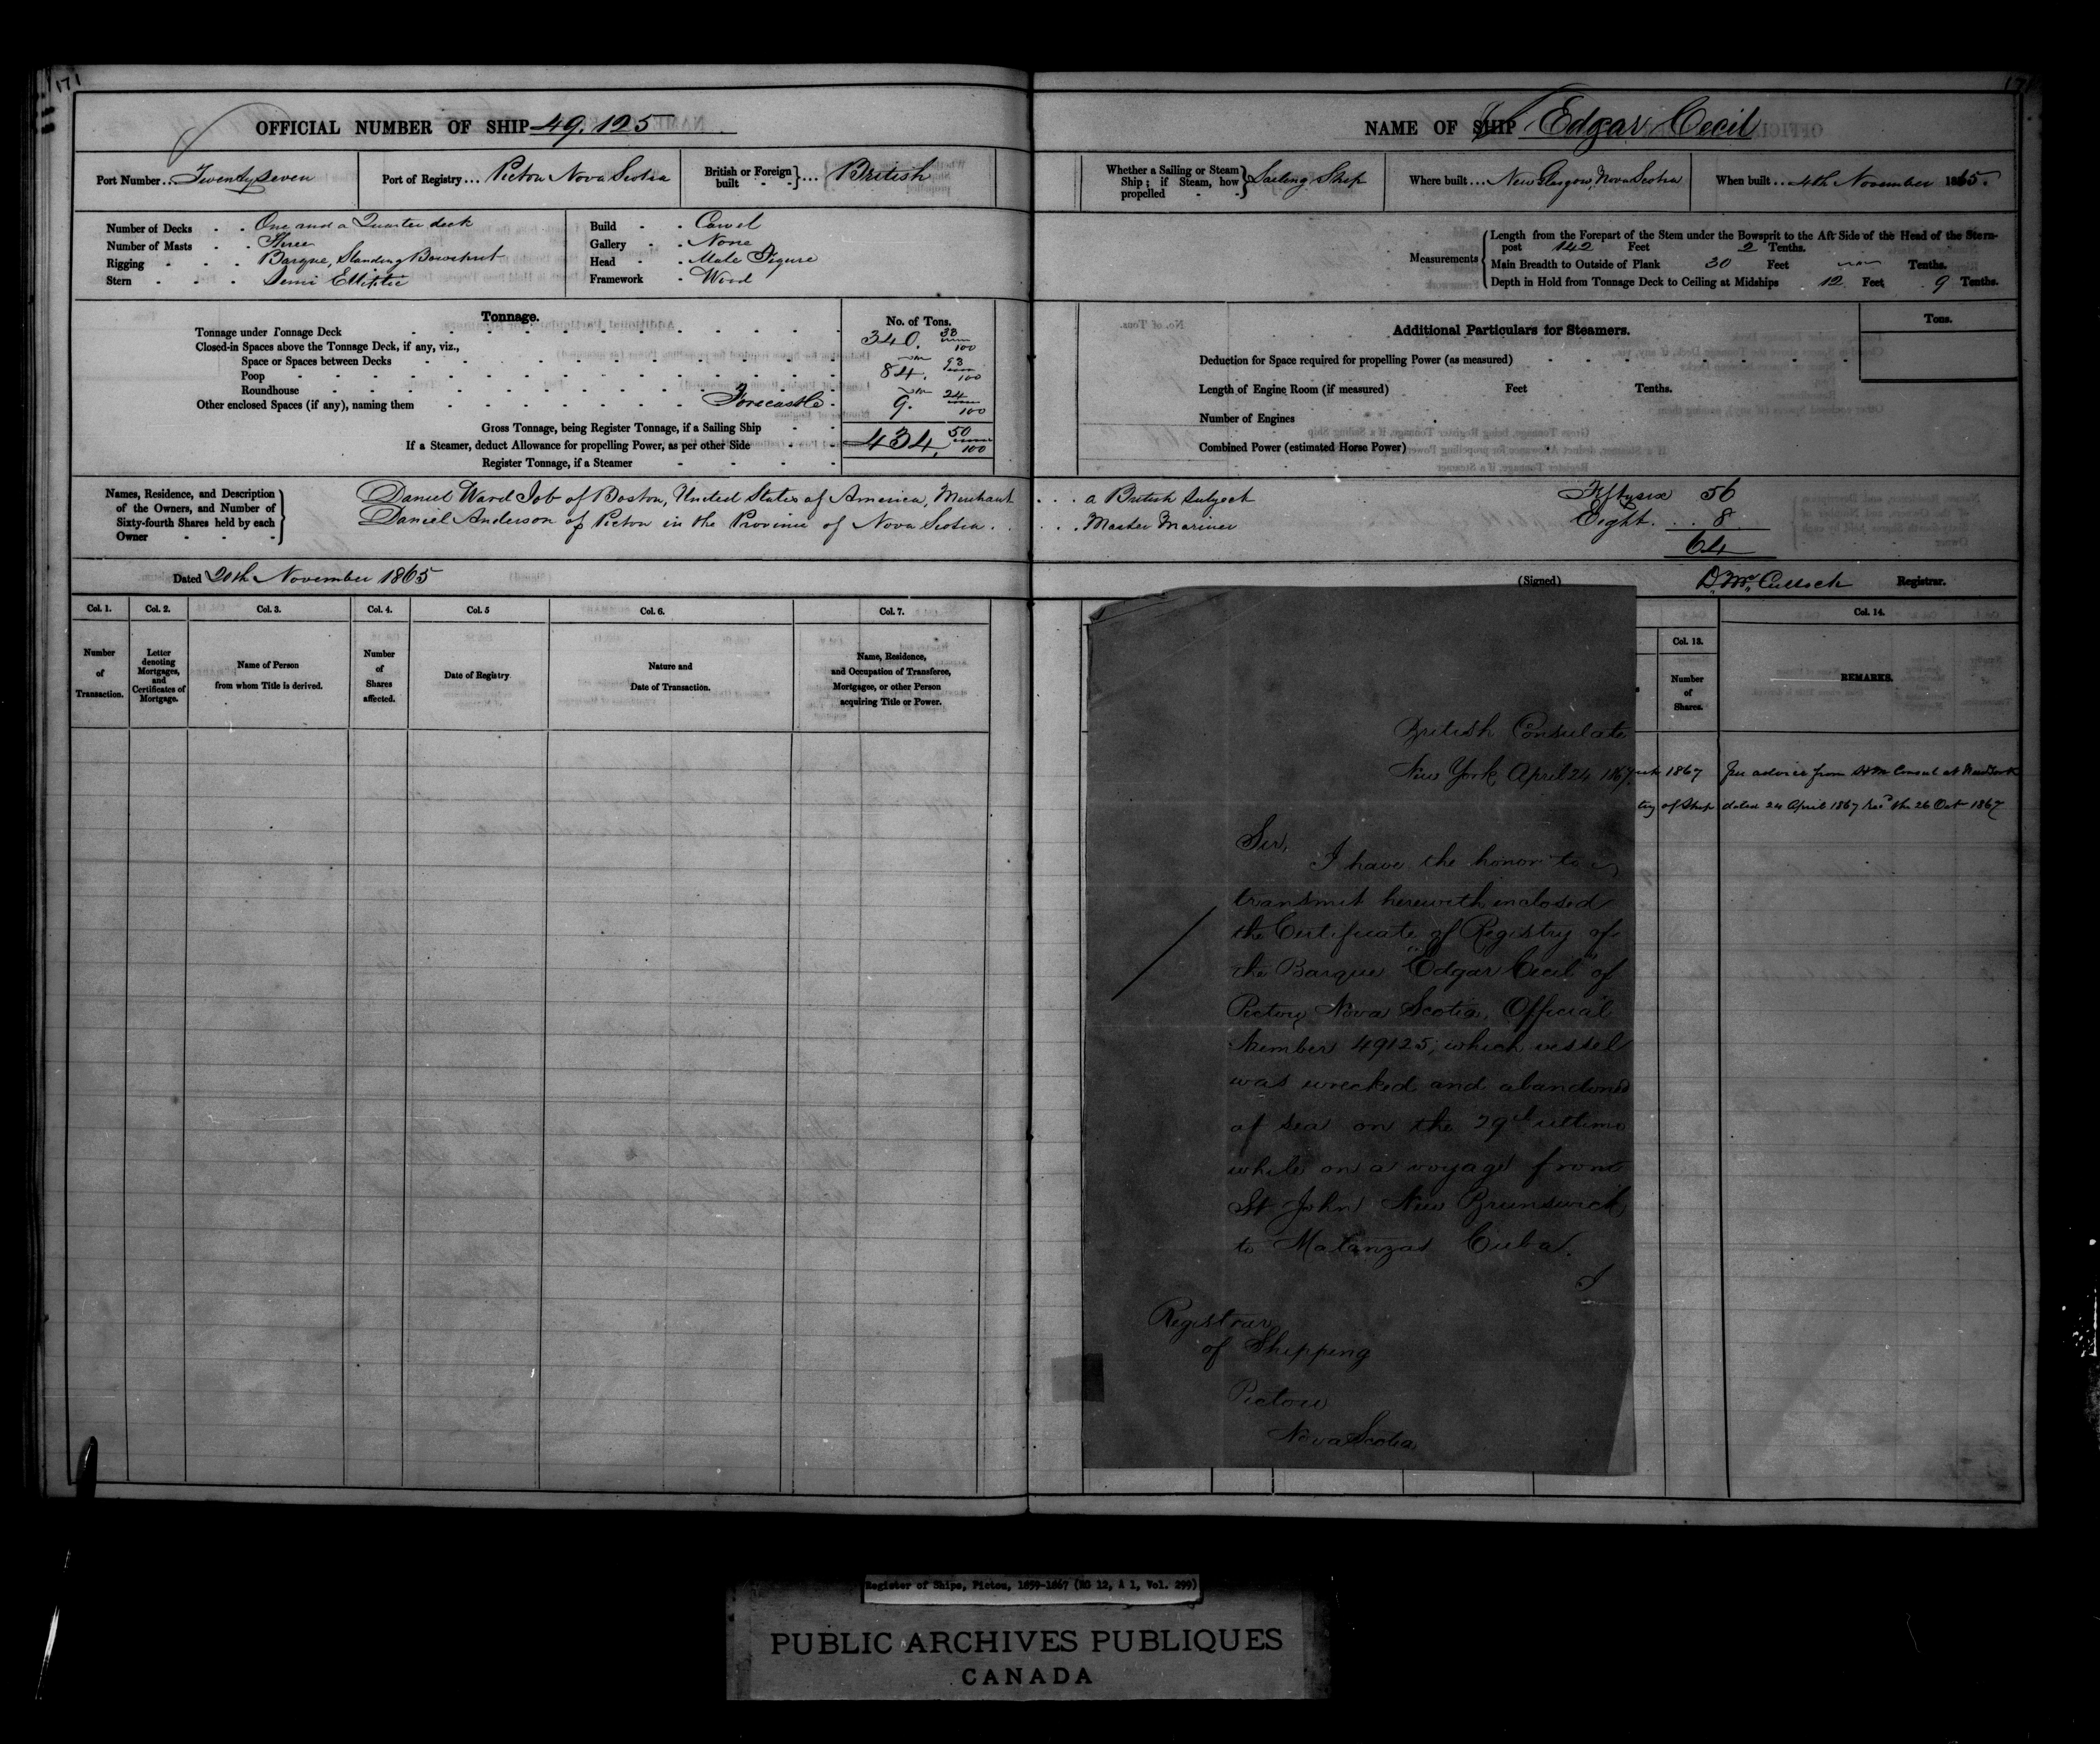 171
OFFICIAL NUMBER OF SHIP 49.125
Port Number... Twentyseven
Port of Registry... Pictou Nova Scotia
British or Foreign built - - } ... British
Number of Decks - - One and a Quarter deck
Number of Masts - - Three
Rigging - - - Barque, Standing Bowsprit
Stern - - - Semi Elliptic
Build - - Carvel
Gallery - - None
Head - - Male Figure
Framework - Wood
Tonnage.
No. of Tons.
Tonnage under Tonnage Deck 340. 33/100
Closed-in Spaces above the Tonnage Deck, if any, viz.,
Space or Spaces between Decks
Poop 84. 93/100
Roundhouse
Other enclosed Spaces (if any), naming them Forecastle 9. 24/100
Gross Tonnage, being Register Tonnage, if a Sailing Ship 434. 50/100
If a Steamer, deduct Allowance for propelling Power, as per other Side
Register Tonnage, if a Steamer
Names, Residence, and Description of the Owners, and Number of Sixty-fourth Shares held by each Owner
Daniel Ward Job of Boston, United States of America, Merchant
Daniel Anderson of Pictou in the Province of Nova Scotia.
Dated 20th November 1865
Col. 1. Col. 2. Col. 3. Col. 4. Col. 5 Col. 6. Col. 7.
Number of Transaction.
Letter denoting Mortgages, and Certificates of Mortgage.
Name of Person from whom Title is derived.
Number of Shares affected.
Date of Registry.
Nature and Date of Transaction.
Name, Residence, and Occupation of Transferee, Mortgagee, or other Person acquiring Title or Power.
171
NAME OF SHIP Edgar Cecil
Whether a Sailing or Steam Ship; if Steam, how propelled - - } Sailing Ship
Where built... New Glasgow, Nova Scotia
When built... 4th November 1865.
Measurements
Length from the Forepart of the Stem under the Bowsprit to the Aft Side of the Head of the Stern-
post 142 Feet 2 Tenths.
Main Breadth to Outside of Plank 30 Feet Tenths.
Depth in Hold from Tonnage Deck to Ceiling at Midships 12 Feet 9 Tenths.
Additional Particulars for Steamers.
Tons.
Deduction for Space required for propelling Power (as measured)
Length of Engine Room (if measured) Feet Tenths.
Number of Engines
Combined Power (estimated Horse Power)
a British Subject Fiftysix 56
Master Mariner Eight 8
64
(Signed) D. McCulloch Registrar.
Col. 13. Col. 14.
Number of Shares.
REMARKS.
1867 Per advice from H M Consul at New York
try of Ship dated 24 April 1867 recd the 26 Oct 1867
British Consulate
New York, April 24 1867.
Sir,
I have the honor to
transmit herewith inclosed
the Certificate of Registry of
the Barque "Edgar Cecil" of
Pictou, Nova Scotia, Official
Number 49125, which vessel
was wrecked and abandoned
at sea on the 29th ultimo
while on a voyage from
St John New Brunswick
to Matanzas Cuba.
I
Registrar
of Shipping
Pictou
Nova Scotia
Register of Ships, Pictou, 1859-1867 (RG 12, A 1, Vol. 299)
PUBLIC ARCHIVES PUBLIQUES
CANADA